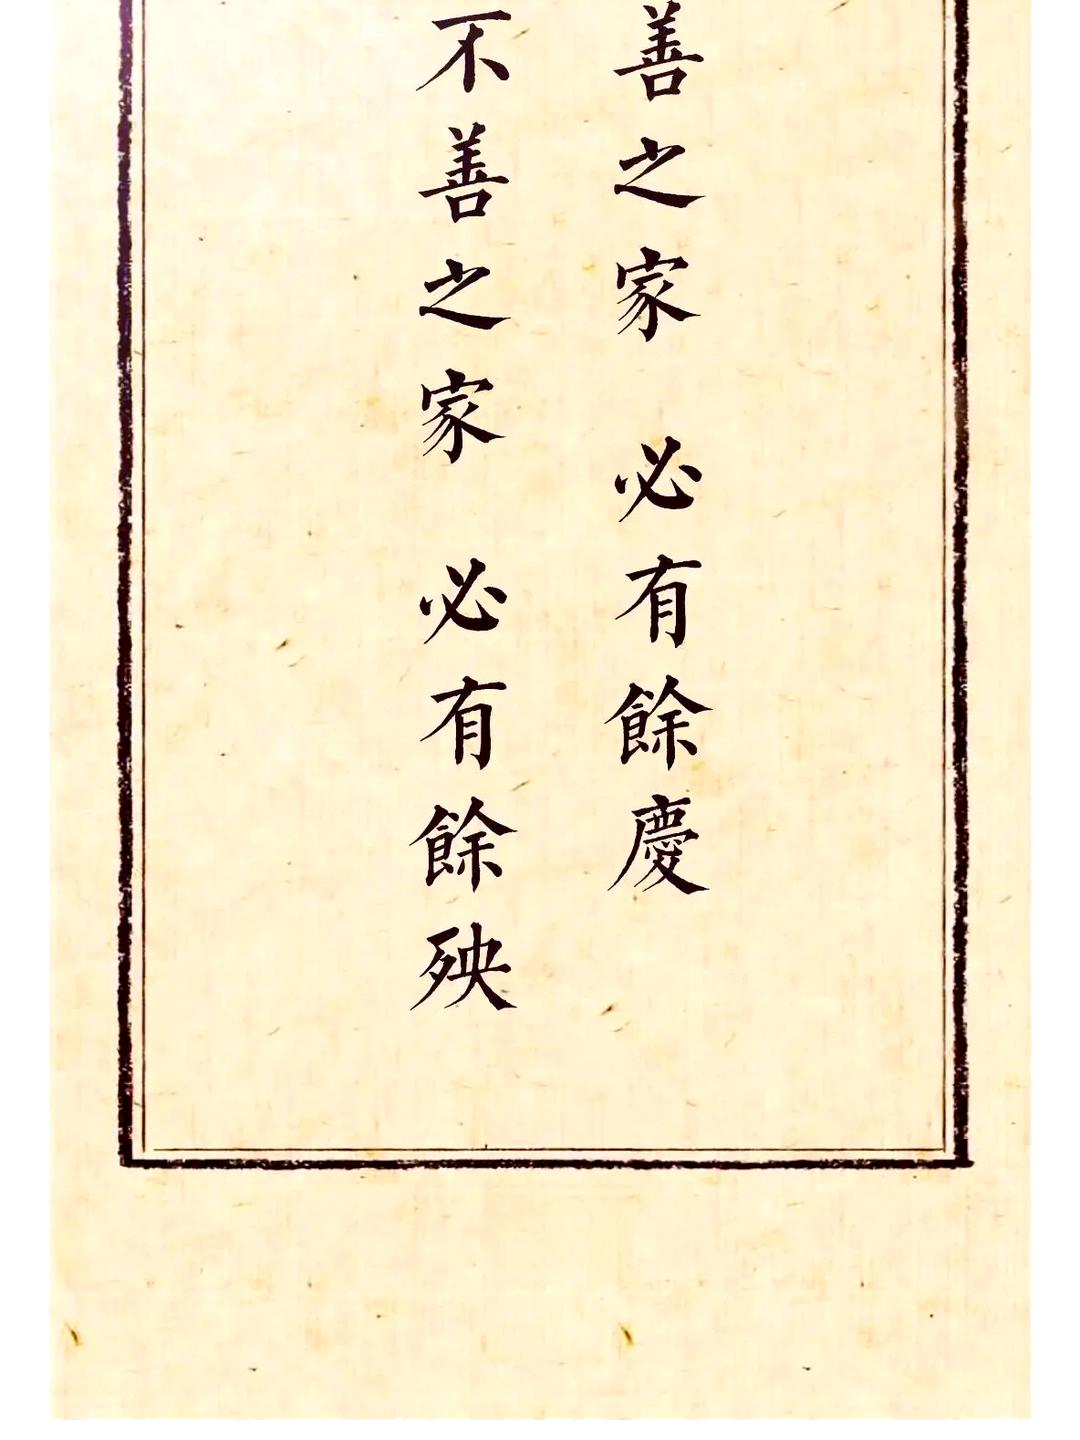 善之家 必有餘慶
不善之家 必有餘殃